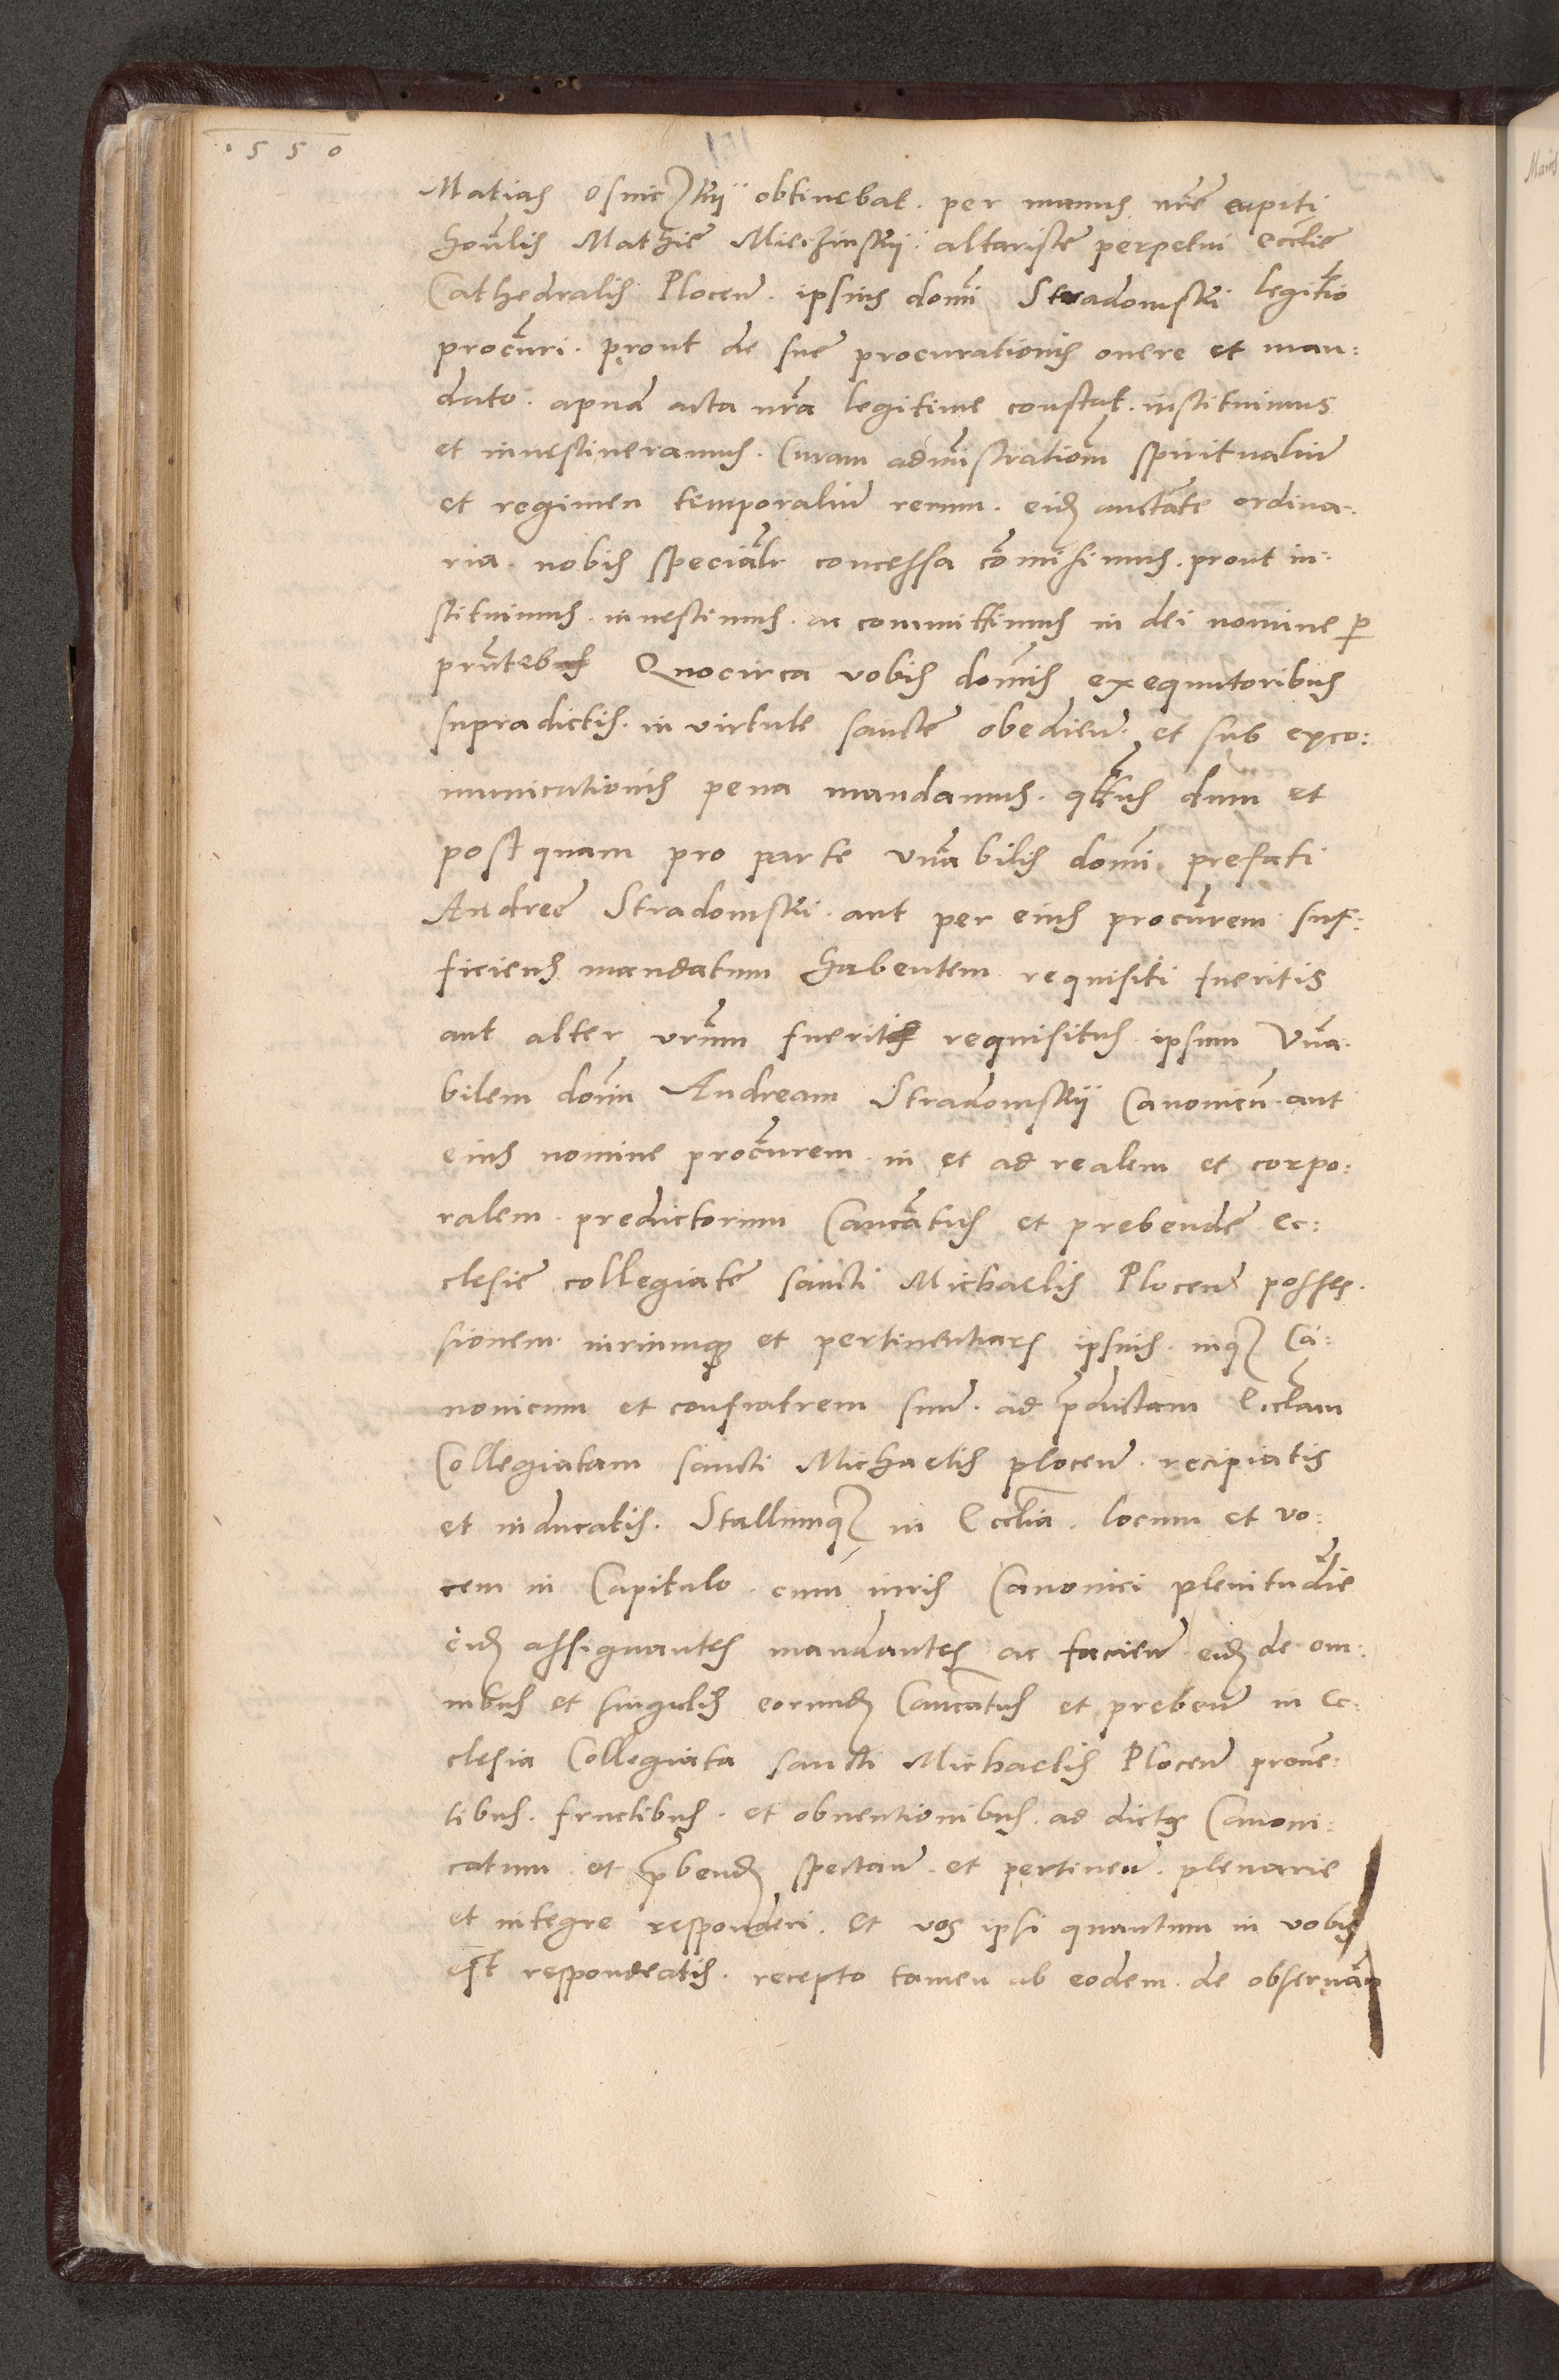 1550
Matias Osniczkii obtinebat. per manus nrẽ capiti
honlis Mathie Mieczinskii altariste perpetui eccliẽ
Cathedralis Plocen. ipsius domi Stradomski legitio
procuri. prout de sue procurationis onere et man:
dato. apud acta nra legitime constat. instituimus
et investiveramus. Curam admistrationem spiritualiu
et regimen temporaliu rerum. eid auctate ordina:
ria. nobis specialr concessa comisimus. prout in:
stituimus. investimus. ac committimus in dei nomine p
prntebs Quocirca vobis domis exequutoribus
supradictis. in virtute sancte obedien. et sub exco:
municationis pena mandamus. qtus dum et
postquam pro parte vnabilis domi. prefati
Andree Stradomski. aut per eius procurem suf:
ficiens mandatum habentem requisiti fueritis
aut alter vrum fuerit requisitus. ipsum Vna:
bilem domi Andream Stradomskii Canonicu aut
eius nomine procurem. in et ad realem et corpo:
ralem. predictorum Cancatus et prebende ec:
clesie collegiate sancti Michaelis Plocen posses:
sionem. iuriumq et pertinentiars ipsius. inq Ca:
nonicum et confratrem suu. ad pdictam Ecclam
Collegiatam sancti Michaelis plocen. recipiatis
et inducatis. Stallumq in Ecclia. locum et vo:
cem in Capitulo. cum iuris Canonici plenitudie
eid assignantes mandantes ac facien eid de om:
nibus et singulis eorund Cancatus et preben in Ec:
clesia Collegiata sancti Michaelis Plocen prouẽ:
tibus. fructibus. et obuentionibus. ad dictos Canoni:
catum. et pbend spectan. et pertinen. plenarie
et integre responderi. Et vos ipsi quantum in vobis
est respondeatis. recepto tamen ab eodem. de obseruan